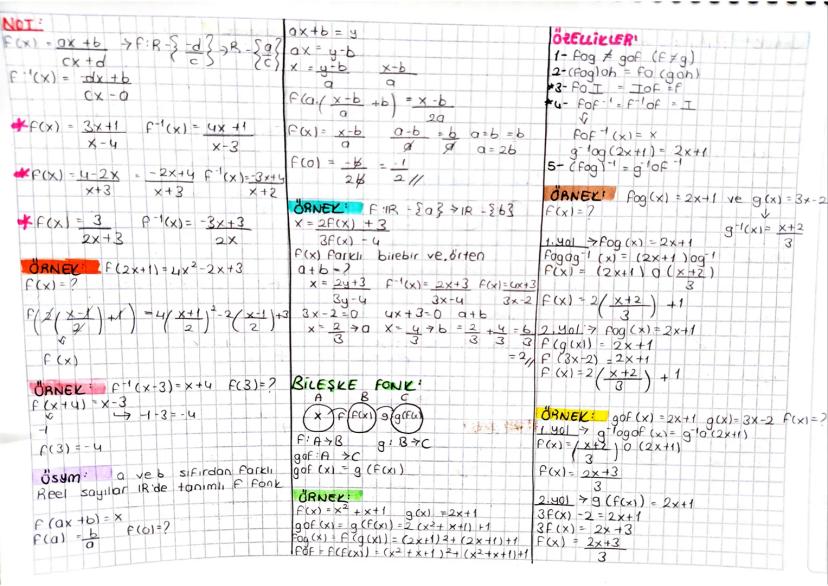 NOT:
f(x) = ax+b / cx+d → f:R-{-d/c} → R-{a/c}
f⁻¹(x) = -dx+b / cx-a
* f(x) = 3x+1 / x-4  f⁻¹(x) = 4x+1 / x-3
* f(x) = 4-2x / x+3 = -2x+4 / x+3  f⁻¹(x) = -3x+4 / x+2
* f(x) = 3 / 2x+3  f⁻¹(x) = -3x+3 / 2x
ÖRNEK: f(2x+1) = 4x²-2x+3
f(x) = ?
f(2(x-1/2)+1) = 4(x+1/2)²-2(x-1/2)+3
f(x)
ÖRNEK: f⁻¹(x-3) = x+4  f(3) = ?
f(x+4) = x-3
-1 → -1-3 = -4
f(3) = -4
ÖSYM: a ve b sıfırdan farklı
Reel sayılar IR'de tanımlı f fonk
f(ax+b) = x
f(a) = b/a  f(0) = ?
ax+b = y
ax = y-b
x = y-b / a  x-b / a
f(a.(x-b / a + b) = x-b / 2a
f(x) = x-b / a  a-b / a = b / a  a-b = b
a = 2b
f(0) = -b / 2b = -1 / 2 //
ÖRNEK: f:IR-{a} → IR-{b}
x = 2f(x)+3 / 3f(x)-4
f(x) farklı birebir ve örten
a+b = ?
x = 2y+3 / 3y-4  f⁻¹(x) = 2x+3 / 3x-4  f(x) = 4x+3 / 3x-2
3x-2=0  4x+3=0  a+b
x = 2/3 → a  x = 4/3 → b = 2/3 + 4/3 = 6/3
= 2 //
BİLEŞKE FONK:
A B C
x f f(x) g g(f(x))
f: A→B  g: B→C
gof: A→C
gof(x) = g(f(x))
ÖRNEK:
f(x) = x²+x+1  g(x) = 2x+1
gof(x) = g(f(x)) = 2(x²+x+1)+1
fog(x) = f(g(x)) = (2x+1)²+(2x+1)+1
fof = f(f(x)) = (x²+x+1)²+(x²+x+1)+1
ÖZELLİKLER:
1- fog ≠ gof (f≠g)
2- (fog)oh = fo(goh)
*3- foI = Iof = f
*4- fof⁻¹ = f⁻¹of = I
fof⁻¹(x) = x
g⁻¹og(2x+1) = 2x+1
5- (fog)⁻¹ = g⁻¹of⁻¹
ÖRNEK: fog(x) = 2x+1 ve g(x) = 3x-2
f(x) = ?
g⁻¹(x) = x+2 / 3
1.yol → fog(x) = 2x+1
fogog⁻¹(x) = (2x+1)og⁻¹
f(x) = (2x+1)o(x+2 / 3)
f(x) = 2(x+2 / 3)+1
2.yol → fog(x) = 2x+1
f(g(x)) = 2x+1
f(3x-2) = 2x+1
f(x) = 2(x+2 / 3)+1
ÖRNEK: gof(x) = 2x+1  g(x) = 3x-2  f(x) = ?
1.yol → g⁻¹ogof(x) = g⁻¹o(2x+1)
f(x) = (x+2 / 3)o(2x+1)
f(x) = 2x+3 / 3
2.yol → g(f(x)) = 2x+1
3f(x)-2 = 2x+1
3f(x) = 2x+3
f(x) = 2x+3 / 3